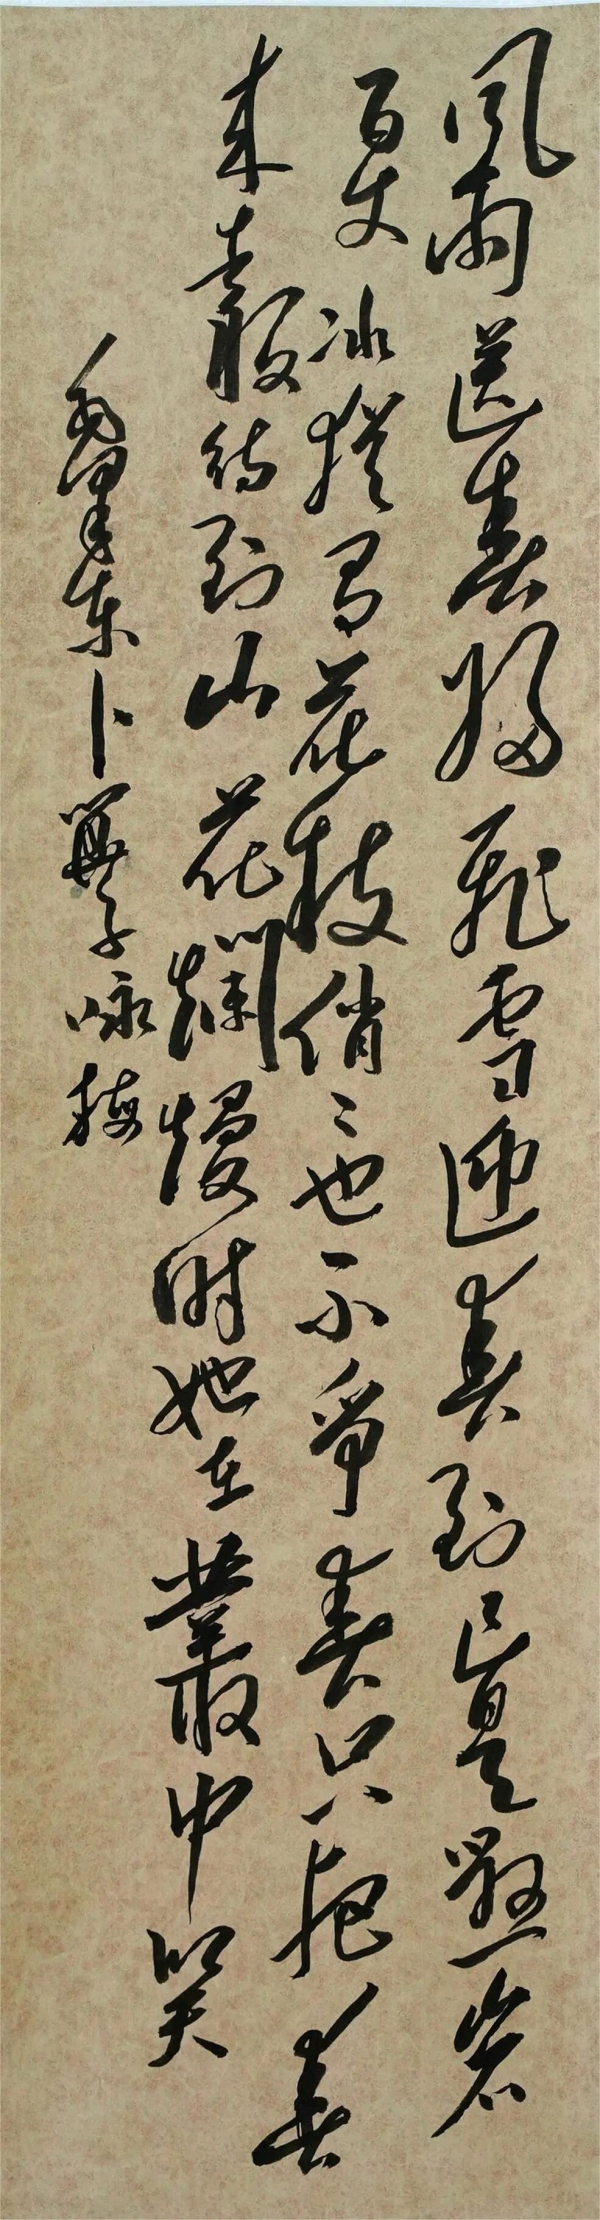 風雨送春歸飛雪迎春到已是懸岩
百丈冰猶有花枝俏〻也不爭春只把春
来報待到山花爛熳時她在叢中笑
毛澤東卜算子咏梅